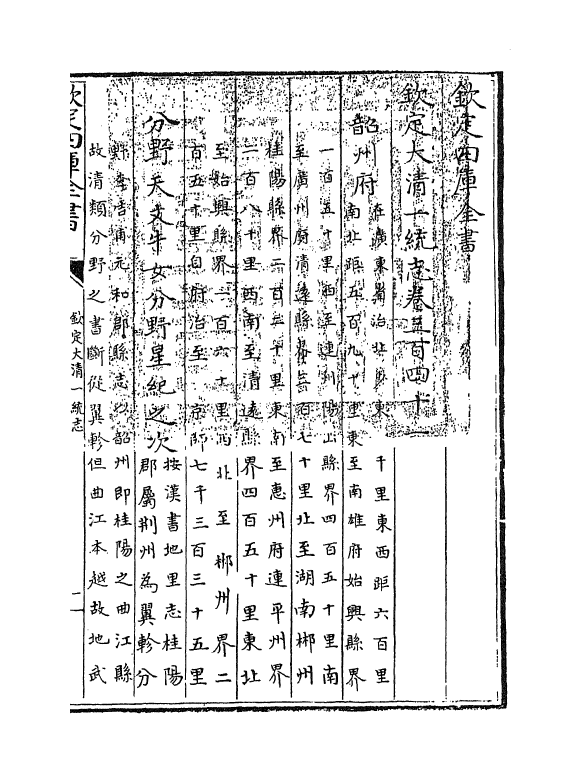 欽定四庫全書
欽定大清一統志卷三百四十一
韶州府
在廣東省治北 千里東西距六百里
南北距五百九十里東至南雄府始興縣界
一百五十里西至連州陽山縣界四百五十里南
至廣州府清遠縣界二百七十里北至湖南郴州
桂陽縣界二百三十里東南至惠州府連平州界
二百八十里西南至清遠縣界四百五十里東北
至始興縣界一百六十里西北至郴州界二
百五十里自府治至 京師七千三百三十五里
分野天文牛女分野星紀之次
按漢書地里志桂陽
郡屬荆州為翼軫分
野李吉甫元和郡縣志以韶州即桂陽之曲江縣
故清類分野之書斷從翼軫但曲江本越故地武
欽定四庫全書
欽定大清一統志
一